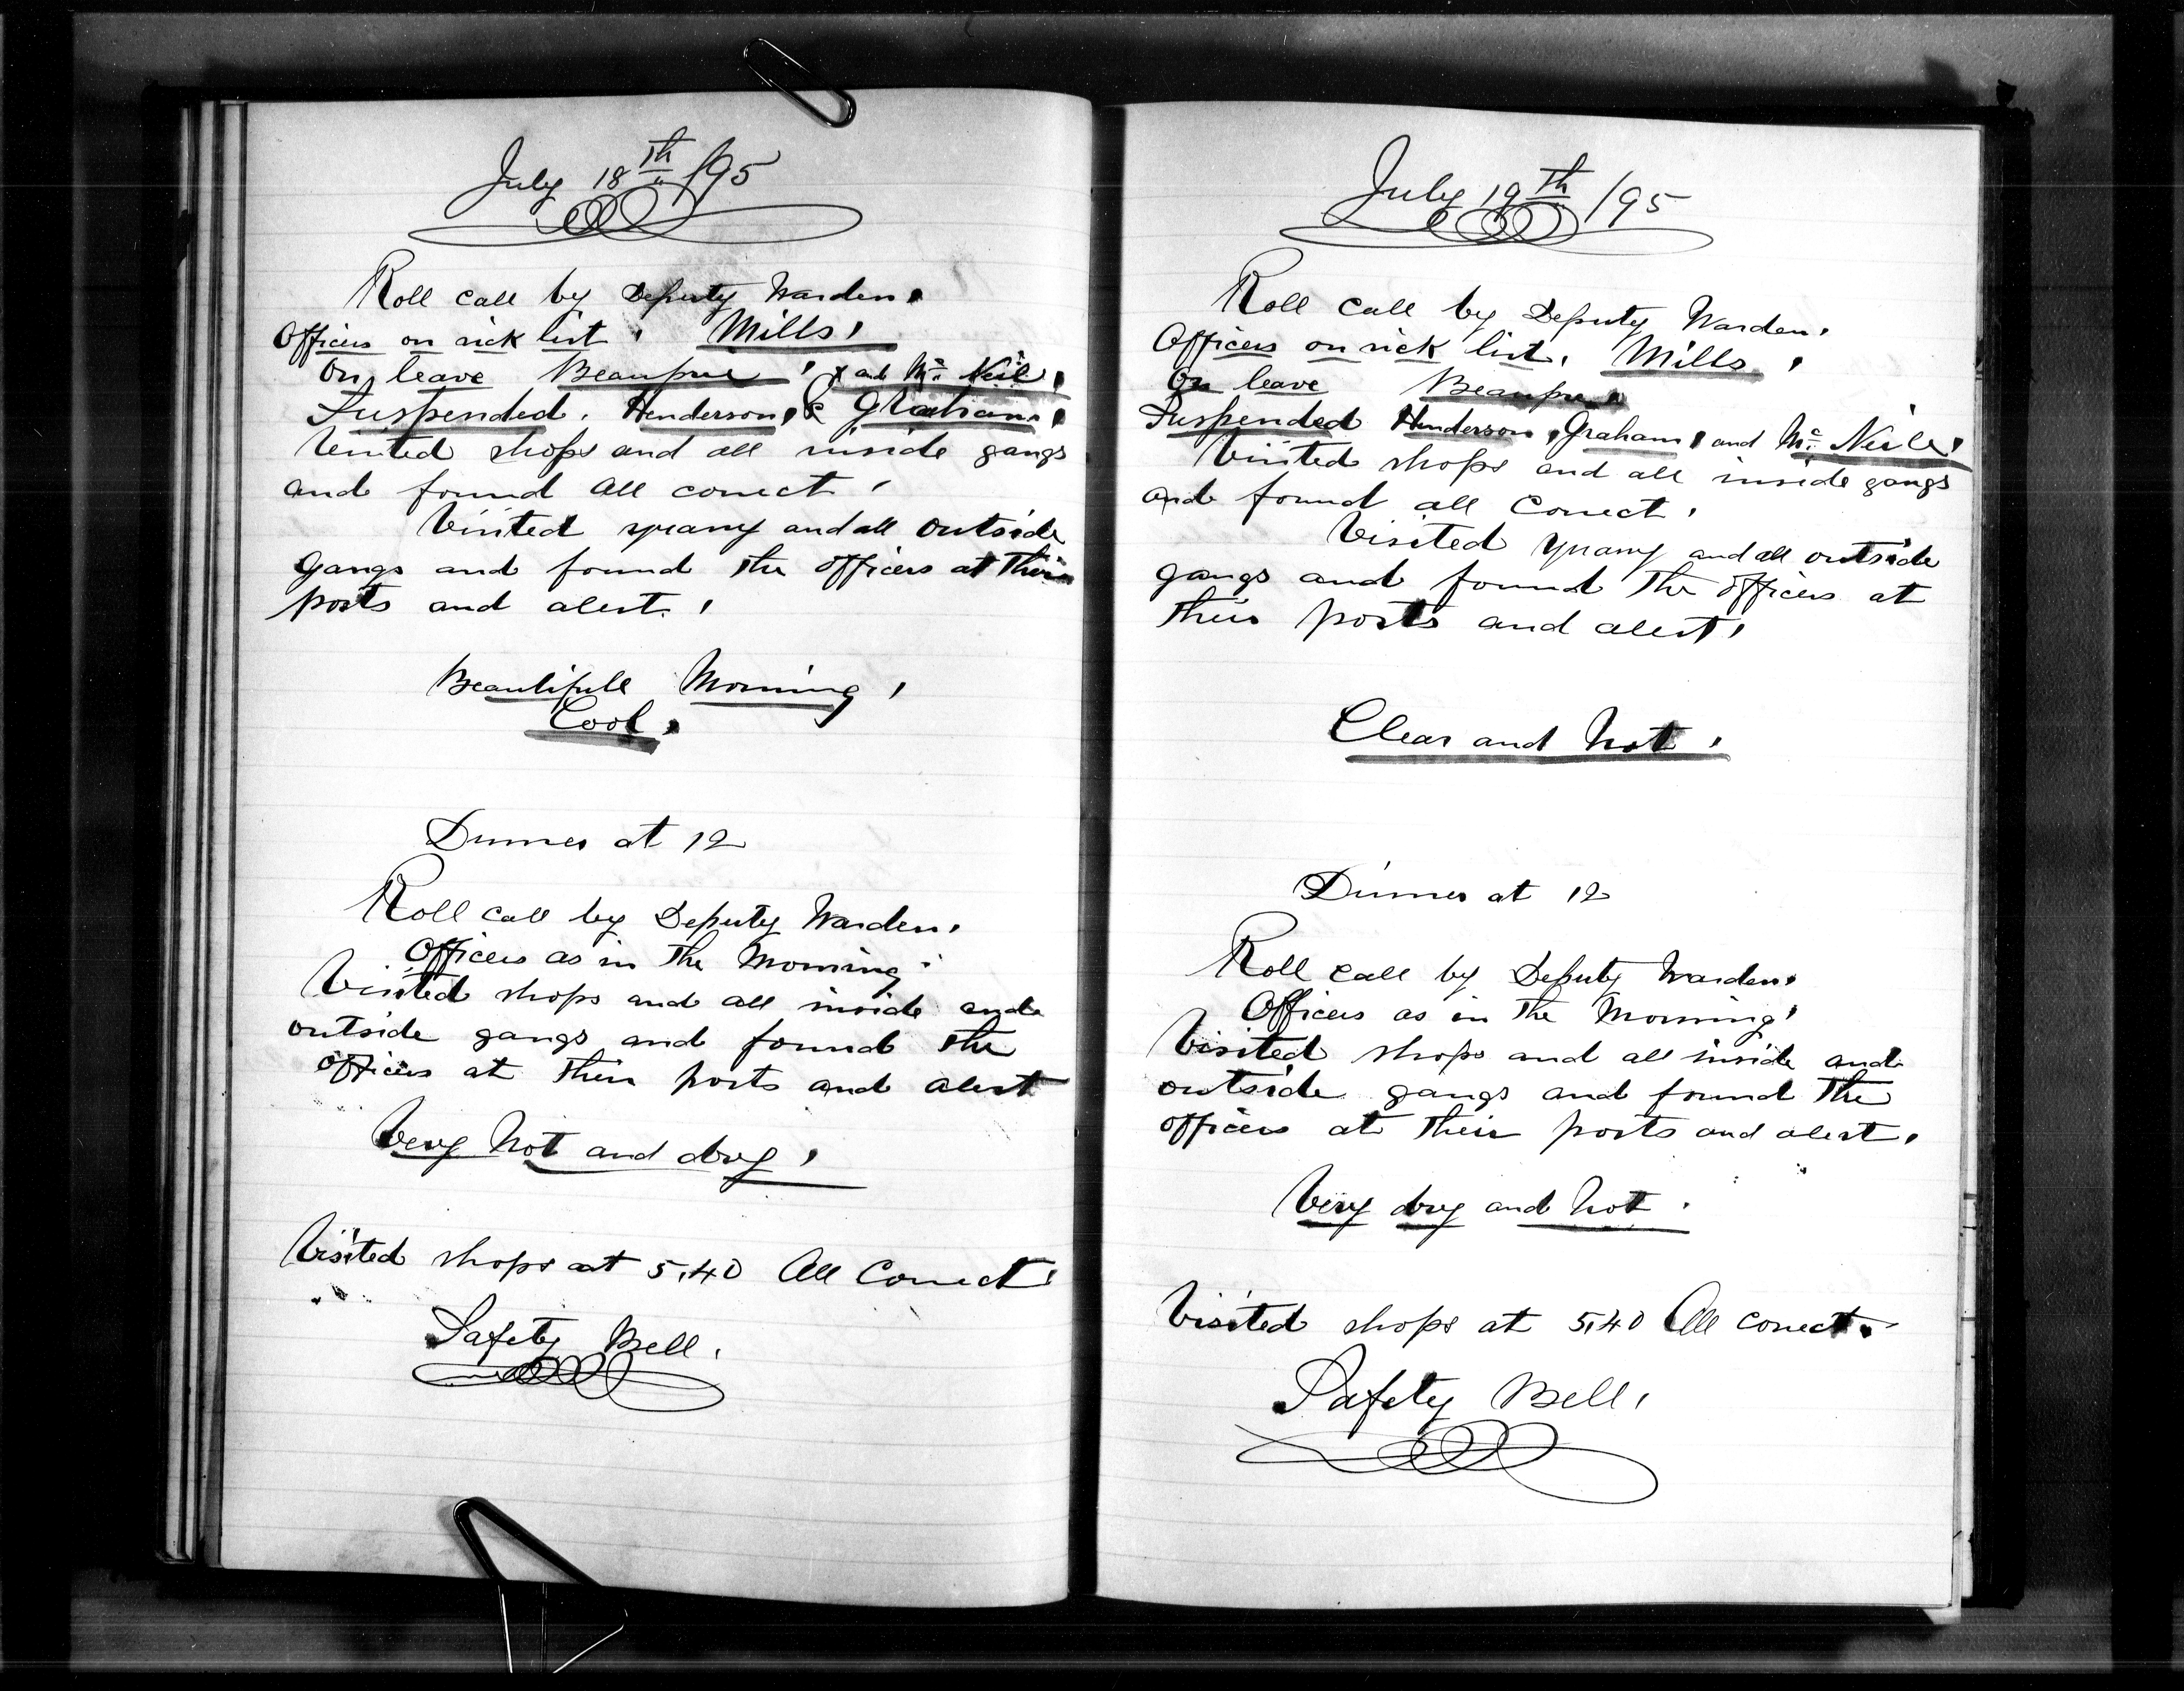 July 18th /95
Roll call by Deputy Warden.
Officers on sick list. Mills.
On leave Beaupre, x and Mc Neil.
Suspended. Henderson, & Graham.
Visited shops and all inside gangs
and found all correct.
Visited quarry and all outside
gangs and found the officers at their
posts and alert.
Beautifull Morning,
Cool.
Dinner at 12
Roll call by Deputy Warden.
Officers as in the Morning.
Visited shops and all inside and
outside gangs and found the
officers at their posts and alert
Very hot and dry.
Visited shops at 5.40 All Correct.
Safety Bell.
July 19th /95
Roll call by Deputy Warden.
Officers on sick list. Mills.
On leave Beaupre.
Suspended Henderson, Graham, and Mc Neile.
Visited shops and all inside gangs
and found all Correct.
Visited quarry and all outside
gangs and found the officers at
their posts and alert.
Clear and hot.
Dinner at 12
Roll call by Deputy Warden.
Officers as in the Morning.
Visited shops and all inside and
outside gangs and found the
officers at their posts and alert.
Very dry and hot.
Visited shops at 5.40 All correct.
Safety Bell.